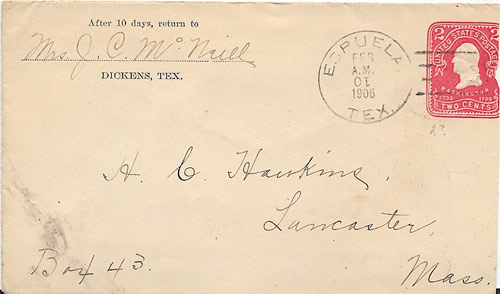 After 10 days, return to
Mrs J. C. McNeill
DICKENS, TEX.
ESPUELA
FEB
A.M.
01
1906
TEX.
UNITED STATES POSTAGE
2 2
WASHINGTON
1732 1799
TWO CENTS
H. C. Hawkins,
Lancaster,
Box 43.
Mass.